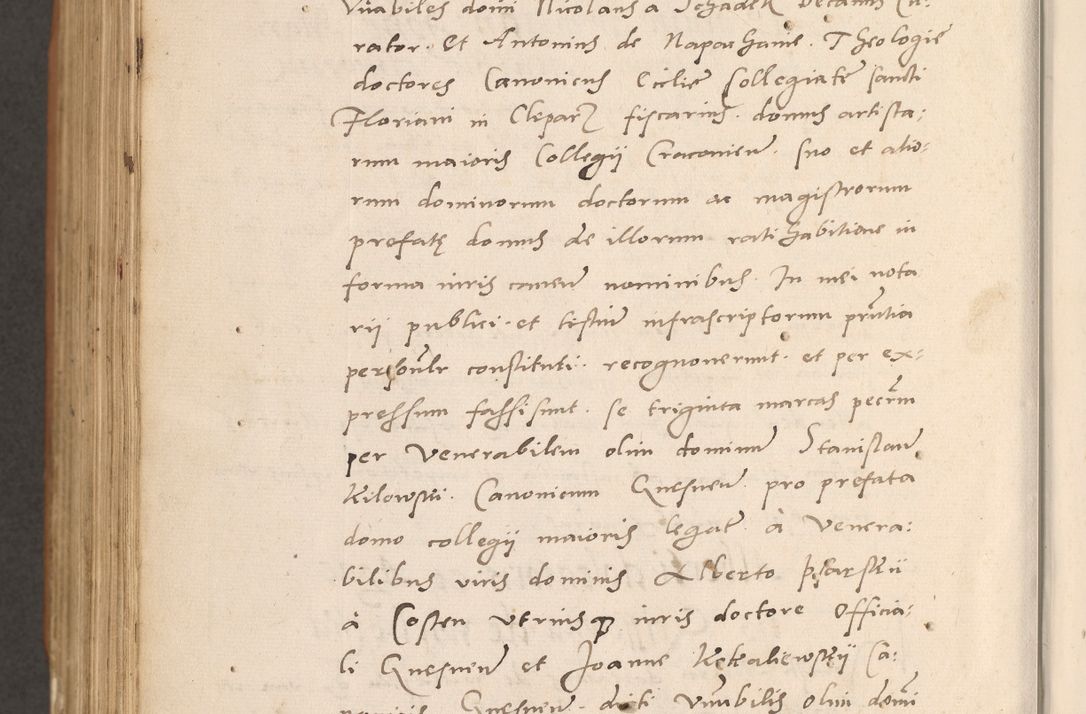 Vnabiles domi Nicolaus a Schadek Decanus Cu:
rator. Et Antonius de Napachanie. Theologie
doctores Canonicus Ecclie Collegiate sancti
Floriani in Clepar fiscarius. domus artista:
rum maioris Collegii Cracouien. suo et alio:
rum dominorum doctorum ac magistrorum
prefatę domus de illorum ratihabitione in
forma iuris cauen nominibus. In mei nota
rii publici. et testiu infrascriptorum pntia
personlr constituti. recognouerunt. et per ex:
pressum fassi sunt. se triginta marcas pecrm
per Venerabilem olim dominu Stanislau
Kilowski. Canonicum Gnesnen. pro prefata
domo collegii maioris legat. a Venera:
bilibus viris dominis Alberto Psarskii
a Costen vtriusq iuris doctore Officia:
li Gnesnen et Joanne Kekaliewskii Ca:
Gnesnen. dicti Vnabilis olim domi